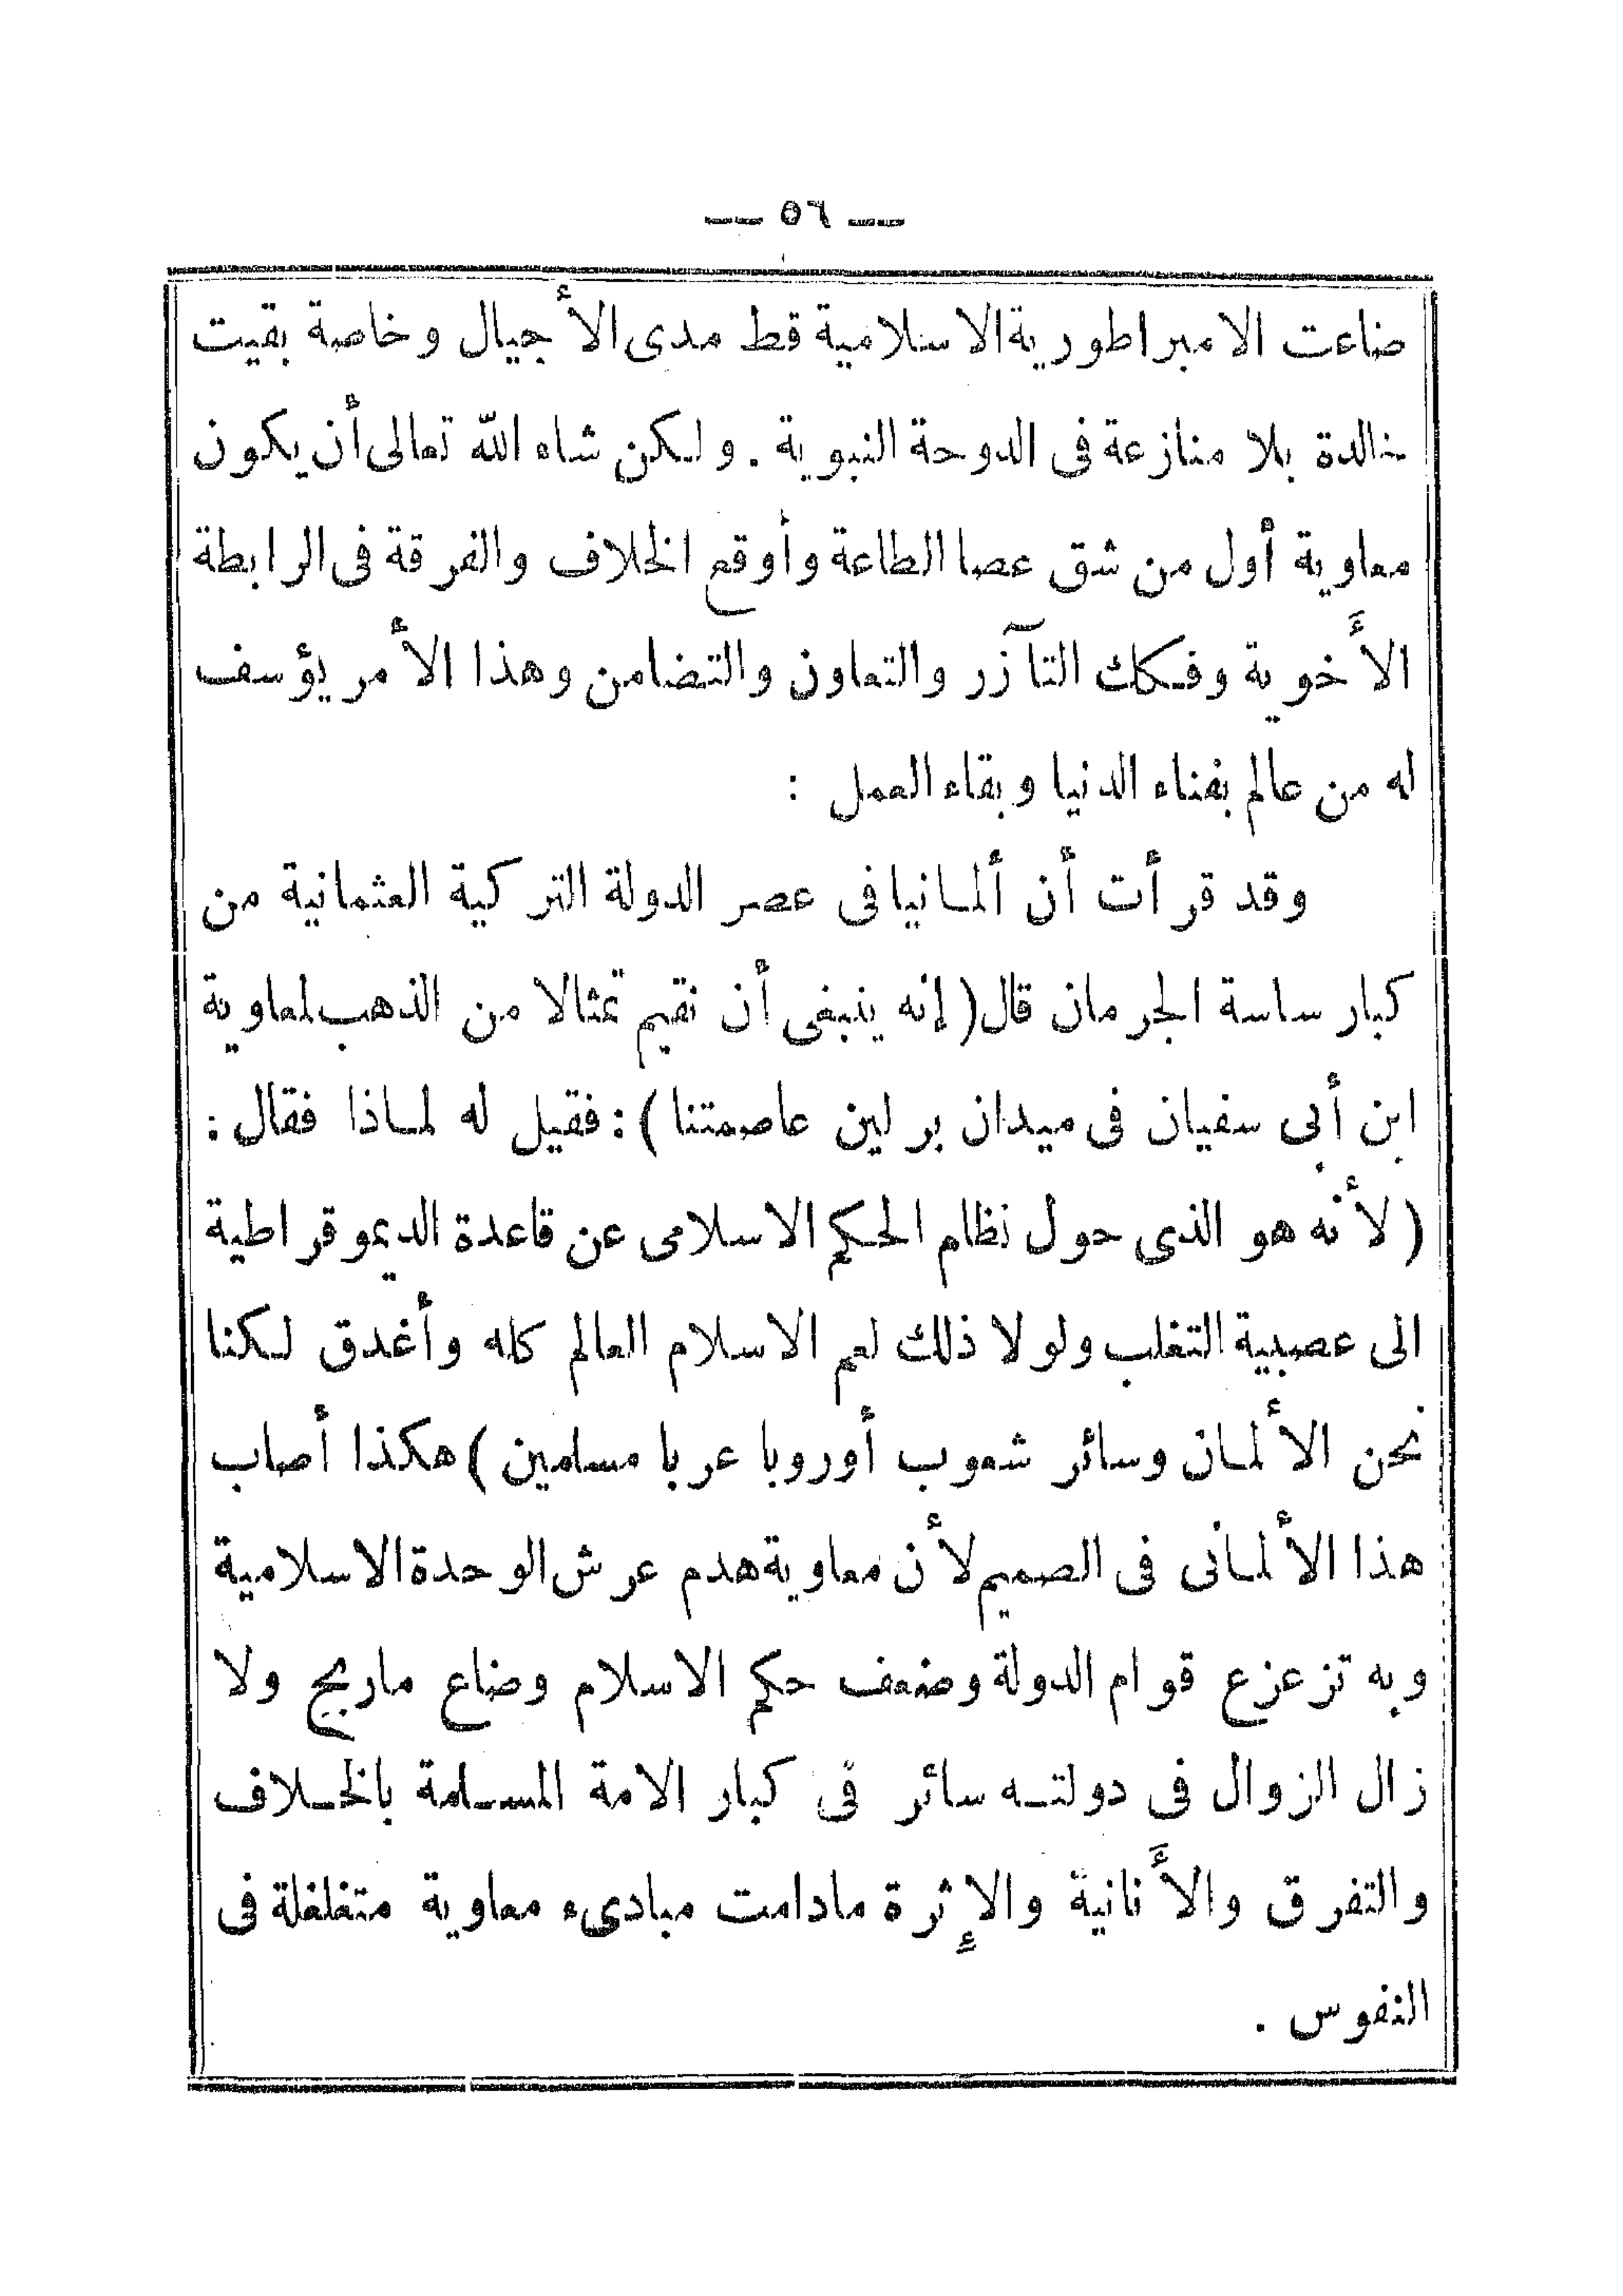 — ٥٦ —
ضاعت الامبراطورية الاسلامية قط مدى الأجيال وخاصة بقيت
خالدة بلا منازعة فى الدوحة النبوية . ولكن شاء الله تعالى أن يكون
معاوية أول من شق عصا الطاعة وأوقع الخلاف والفرقة فى الرابطة
الأَخوية وفكك التآزر والتعاون والتضامن وهذا الأمر يؤسف
له من عالم بفناء الدنيا وبقاء العمل :
وقد قرأت أن ألمانيا فى عصر الدولة التركية العثمانية من
كبار ساسة الجرمان قال ( إنه ينبغى أن نقيم تمثالا من الذهب لمعاوية
ابن أبى سفيان فى ميدان برلين عاصمتنا ) : فقيل له لماذا فقال :
( لأنه هو الذى حول نظام الحكم الاسلامى عن قاعدة الديموقراطية
الى عصبية التغلب ولولا ذلك لعم الاسلام العالم كله وأغدق لكنا
نحن الألمان وسائر شعوب أوروبا عربا مسلمين ) هكذا أصاب
هذا الألمانى فى الصميم لأن معاوية هدم عرش الوحدة الاسلامية
وبه تزعزع قوام الدولة وضعف حكم الاسلام وضاع ماربح ولا
زال الزوال فى دولته سائر فى كبار الامة المسلمة بالخلاف
والتفرق والأَنانية والإثرة مادامت مبادىء معاوية متغلغلة فى
النفوس .